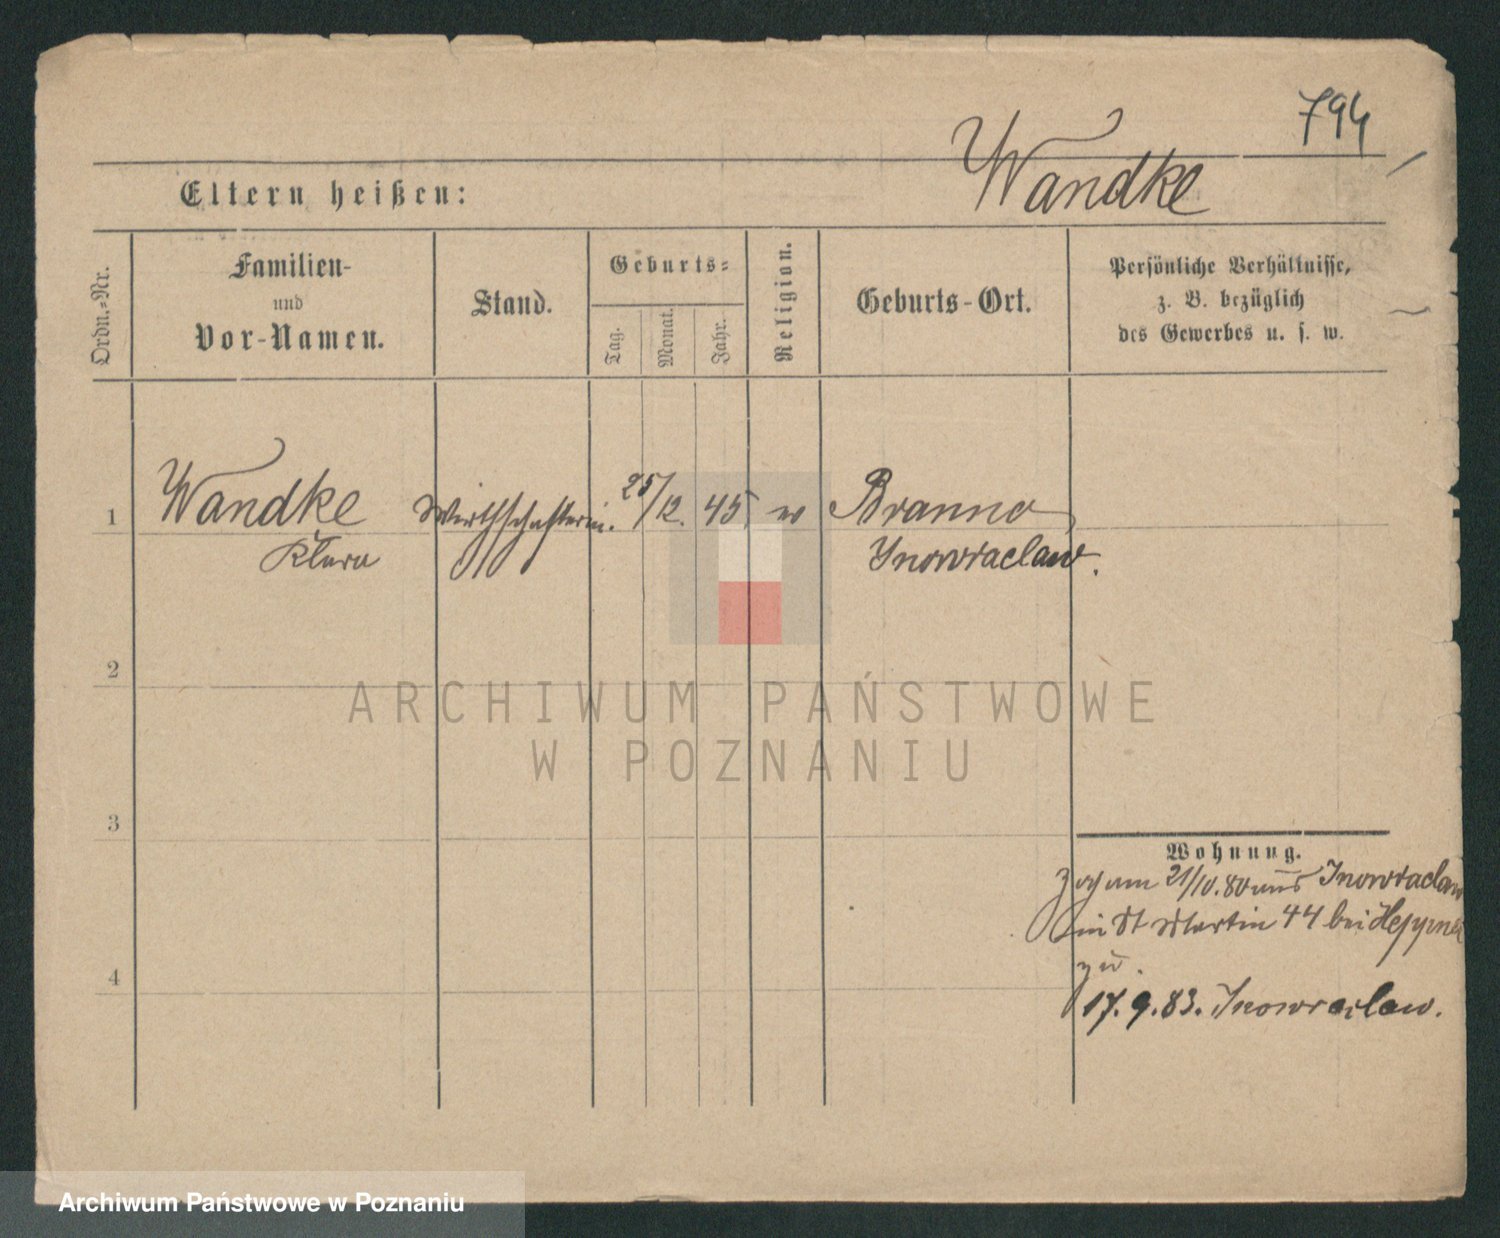 794
Wandke
Eltern heißen:
Ordn.-Nr.
Familien-
und
Vor-Namen.
Stand.
Geburts-
Tag.
Monat.
Jahr.
Religion.
Geburts-Ort.
Persönliche Verhältnisse,
z. B. bezüglich
des Gewerbes u. s. w.
1 Wandke Wirthschafterin. 25/12. 45 Branno
Klara Inowraclaw.
2
ARCHIWUM PAŃSTWOWE
W POZNANIU
3
4
Wohnung.
Zog am 21/10.80 aus Inowraclaw
in St Martin 44 bei Heppner
zu.
17.9.83. Inowraclaw.
Archiwum Państwowe w Poznaniu